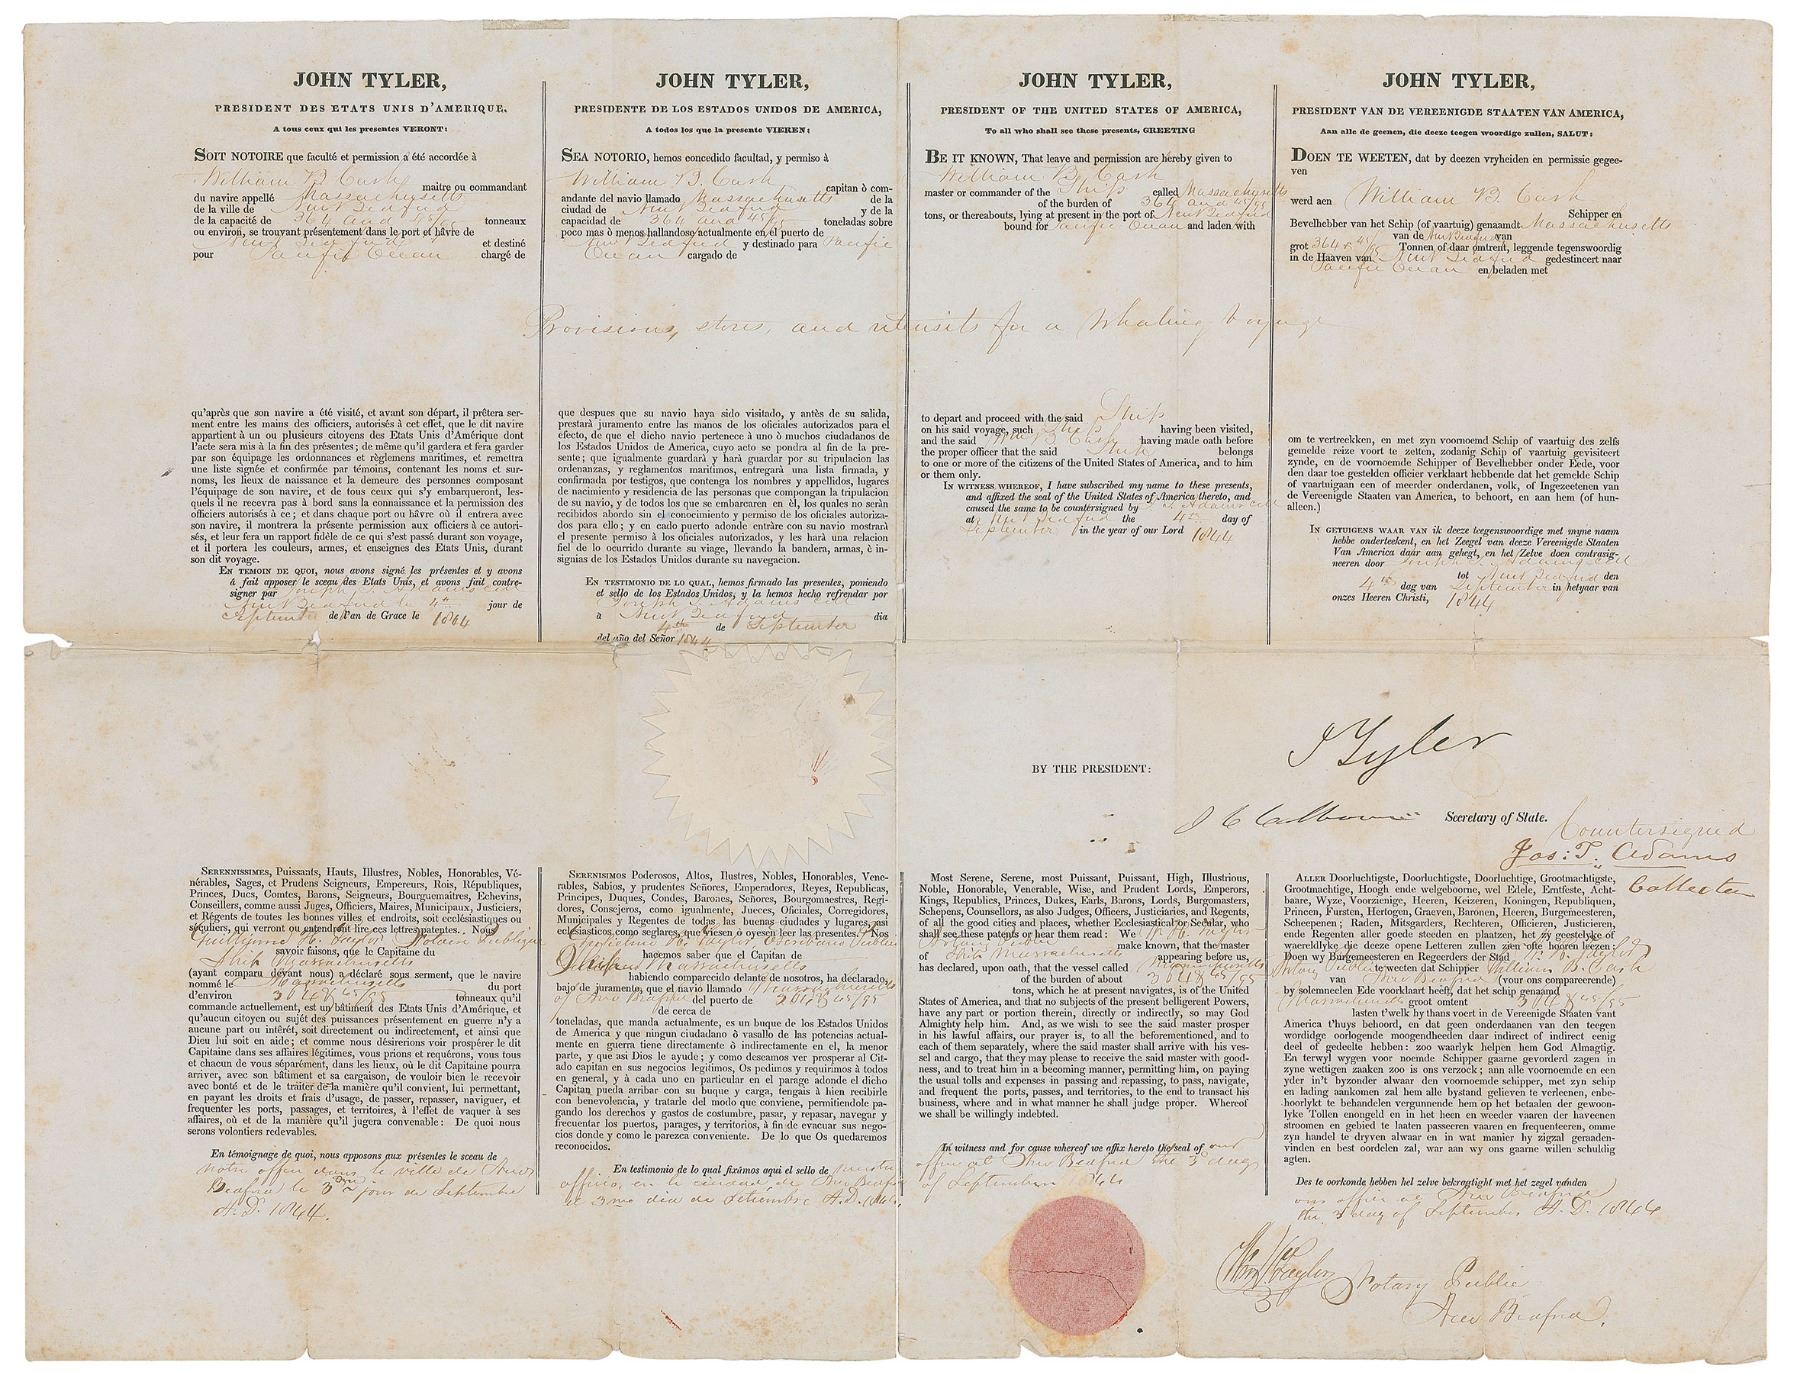 JOHN TYLER,
PRESIDENT DES ETATS UNIS D'AMERIQUE,
A tous ceux qui les presentes VERONT:
SOIT NOTOIRE que faculté et permission a été accordée à
William B. Cash maitre ou commandant
du navire appellé Massachusetts
de la ville de New Bedford
de la capacité de 364 and 45/95 tonneaux
ou environ, se trouvant présentement dans le port et hâvre de
New Bedford et destiné
pour Pacific Ocean chargé de
JOHN TYLER,
PRESIDENTE DE LOS ESTADOS UNIDOS DE AMERICA,
A todos los que la presente VIEREN:
SEA NOTORIO, hemos concedido facultad, y permiso à
William B. Cash capitan ò com-
andante del navio llamado Massachusetts de la
ciudad de New Bedford y de la
capacidad de 364 and 45/95 toneladas sobre
poco mas ò menos hallandose actualmente en el puerto de
New Bedford y destinado para Pacific
Ocean cargado de
JOHN TYLER,
PRESIDENT OF THE UNITED STATES OF AMERICA,
To all who shall see these presents, GREETING
BE IT KNOWN, That leave and permission are hereby given to
William B. Cash
master or commander of the Ship called Massachusetts
of the burden of 364 and 45/95
tons, or thereabouts, lying at present in the port of New Bedford
bound for Pacific Ocean and laden with
JOHN TYLER,
PRESIDENT VAN DE VEREENIGDE STAATEN VAN AMERICA,
Aan alle de geenen, die deeze teegen woordige zullen, SALUT:
DOEN TE WEETEN, dat by deezen vryheiden en permissie gegee-
ven
werd aen William B. Cash
Schipper en
Bevelhebber van het Schip (of vaartuig) genaamdt Massachusetts
van de New Bedford van
grot 364 & 45/95 Tonnen of daar omtrent, leggende tegenswoordig
in de Haaven van New Bedford gedestineert naar
Pacific Ocean en beladen met
Provisions, stores, and utensils for a Whaling Voyage
qu'après que son navire a été visité, et avant son départ, il prêtera ser-
ment entre les mains des officiers, autorisés à cet effet, que le dit navire
appartient à un ou plusieurs citoyens des Etats Unis d'Amérique dont
l'acte sera mis à la fin des présentes; de même qu'il gardera et fera garder
par son équipage les ordonnances et règlemens maritimes, et remettra
une liste signée et confirmée par témoins, contenant les noms et sur-
noms, les lieux de naissance et la demeure des personnes composant
l'équipage de son navire, et de tous ceux qui s'y embarqueront, les-
quels il ne recevra pas à bord sans la connaissance et la permission des
officiers autorisés à ce; et dans chaque port ou hâvre où il entrera avec
son navire, il montrera la présente permission aux officiers à ce autori-
sés, et leur fera un rapport fidèle de ce qui s'est passé durant son voyage,
et il portera les couleurs, armes, et enseignes des Etats Unis, durant
son dit voyage.
EN TEMOIN DE QUOI, nous avons signé les présentes et y avons
à fait apposer le sceau des Etats Unis, et avons fait contre-
signer par Joseph T. Adams coll
New Bedford le 4th jour de
September de l'an de Grace le 1844
que despues que su navio haya sido visitado, y antès de su salida,
prestará juramento entre las manos de los oficiales autorizados para el
efecto, de que el dicho navio pertenece à uno ò muchos ciudadanos de
los Estados Unidos de America, cuyo acto se pondra al fin de la pre-
sente; que igualmente guardará y hará guardar por su tripulacion las
ordenanzas, y reglamentos maritimos, entregará una lista firmada, y
confirmada por testigos, que contenga los nombres y appellidos, lugares
de nacimiento y residencia de las personas que compongan la tripulacion
de su navio, y de todos los que se embarcaren en èl, los quales no serán
recibidos abordo sin el conocimiento y permiso de los oficiales autoriza-
dos para ello; y en cado puerto adonde entràre con su navio mostrarà
el presente permiso à los oficiales autorizados, y les hará una relacion
fiel de lo ocurrido durante su viage, llevando la bandera, armas, è in-
signias de los Estados Unidos durante su navegacion.
EN TESTIMONIO DE LO QUAL, hemos firmado las presentes, poniendo
el sello de los Estados Unidos, y la hemos hècho refrendar por
Joseph T. Adams coll
a New Bedford dia
4th de September
del año del Señor 1844
to depart and proceed with the said Ship
on his said voyage, such Ship having been visited,
and the said Wm B Cash having made oath before
the proper officer that the said Ship belongs
to one or more of the citizens of the United States of America, and to him
or them only.
IN WITNESS WHEREOF, I have subscribed my name to these presents,
and affixed the seal of the United States of America thereto, and
caused the same to be countersigned by J. T. Adams coll
at New Bedford the 4th day of
September in the year of our Lord 1844
om te vertreekken, en met zyn voornoemd Schip of vaartuig des zelfs
gemelde reize voort te zetten, zodanig Schip of vaartuig gevisiteert
zynde, en de voornoemde Schipper of Bevelhebber onder Eede, voor
den daar toe gestelden officier verklaart hebbende dat het gemelde Schip
of vaartuigaan een of meerder onderdanen, volk, of Ingezeetenen van
de Vereenigde Staaten van America, te behoort, en aan hem (of hun-
alleen.)
IN GETUIGENS WAAR VAN ik deeze teegenswoordige met myne naam
hebbe onderteekent, en het Zeegel van deeze Vereenigde Staaten
Van America daar aan gehegt, en het Zelve doen contrasig-
neeren door Joseph T. Adams coll
tot New Bedford den
4th dag van September in hetyaar van
onzes Heeren Christi, 1844
J Tyler
BY THE PRESIDENT:
J C Calhoun Secretary of State.
Countersigned
Jos: T. Adams
Collector
SERENISSIMES, Puissants, Hauts, Illustres, Nobles, Honorables, Vé-
nérables, Sages, et Prudens Seigneurs, Empereurs, Rois, Républiques,
Princes, Ducs, Comtes, Barons, Seigneurs, Bourguemaitres, Echevins,
Conseillers, comme aussi Juges, Officiers, Maires, Municipaux, Justiciers,
et Régents de toutes les bonnes villes et endroits, soit ecclésiastiques ou
séculiers, qui verront ou entendront lire ces lettres patentes. Nous
Guillaume H. Taylor Notaire Publique
savoir faisons, que le Capitaine du
Ship Massachusetts
(ayant comparu devant nous) a déclaré sous serment, que le navire
nommé le Massachusetts du port
d'environ 364 & 45/95 tonneaux qu'il
commande actuellement, est un bâtiment des Etats Unis d'Amérique, et
qu'aucun citoyen ou sujet des puissances présentement en guerre n'y a
aucune part ou intérêt, soit directement ou indirectement, et ainsi que
Dieu lui soit en aide; et comme nous désirerions voir prospérer le dit
Capitaine dans ses affaires légitimes, vous prions et requérons, vous tous
et chacun de vous séparément, dans les lieux, où le dit Capitaine pourra
arriver, avec son bâtiment et sa cargaison, de vouloir bien le recevoir
avec bonté et de le traiter de la manière qu'il convient, lui permettant,
en payant les droits et frais d'usage, de passer, repasser, naviguer, et
frequenter les ports, passages, et territoires, à l'effet de vaquer à ses
affaires, où et de la manière qu'il jugera convenable: De quoi nous
serons volontiers redevables.
En témoignage de quoi, nous apposons aux présentes le sceau de
notre office dans le ville de New
Bedford le 3me jour de Septembre
A.D. 1844.
SERENISIMOS Poderosos, Altos, Ilustres, Nobles, Honorables, Vene-
rables, Sabios, y prudentes Señores, Emperadores, Reyes, Republicas,
Principes, Duques, Condes, Barones, Señores, Bourgomnestres, Regi-
dores, Consejeros, como igualmente, Jueces, Oficiales, Corregidores,
Municipales y Regentes de todas las buenas ciudades y lugares, asi
ecclesiasticos como seglares, que viesen ò oyesen leer las presentes. Nos
H. Taylor Escribano Publico
hacemos saber que el Capitan de
Massachusetts
habiendo comparecido delante de nosotros, ha declarado
bajo de juramento, que el navio llamado Massachusetts
of New Bedford del puerto de 364 & 45/95
de cerca de
toneladas, que manda actualmente, es un buque de los Estados Unidos
de America y que ningun ciudadano ò vasallo de las potencias actual-
mente en guerra tiene directamente ò indirectamente en el, la menor
parte, y que asi Dios le ayude; y como deseamos ver prosperar al Cit-
ado capitan en sus negocios legitimos, Os pedimos y requirimos à todos
en general, y à cada uno en particular en el parage adonde el dicho
Capitan pueda arribar con su buque y carga, tengais à bien recibirle
con benevolencia, y tratarle del modo que conviene, permitiendole pa-
gando los derechos y gastos de costumbre, pasar, y repasar, navegar y
frecuentar los puertos, parages, y territorios, à fin de evacuar sus nego-
cios donde y como le parezca conveniente. De lo que Os quedaremos
reconocidos.
En testimonio de lo qual fixámos aqui el sello de nuestro
officio, en la ciudad de New Bedford
le 3mo dia de Setiembre A.D. 1844.
Most Serene, Serene, most Puissant, Puissant, High, Illustrious,
Noble, Honorable, Venerable, Wise, and Prudent Lords, Emperors,
Kings, Republics, Princes, Dukes, Earls, Barons, Lords, Burgomasters,
Schepens, Counsellors, as also Judges, Officers, Justiciaries, and Regents,
of all the good cities and places, whether Ecclesiastical or Secular, who
shall see these patents or hear them read: We W. H. Taylor
Notary Public make known, that the master
of Ship Massachusetts appearing before us,
has declared, upon oath, that the vessel called Massachusetts
of the burden of about 364 & 45/95
tons, which he at present navigates, is of the United
States of America, and that no subjects of the present belligerent Powers,
have any part or portion therein, directly or indirectly, so may God
Almighty help him. And, as we wish to see the said master prosper
in his lawful affairs, our prayer is, to all the beforementioned, and to
each of them separately, where the said master shall arrive with his ves-
sel and cargo, that they may please to receive the said master with good-
ness, and to treat him in a becoming manner, permitting him, on paying
the usual tolls and expenses in passing and repassing, to pass, navigate,
and frequent the ports, passes, and territories, to the end to transact his
business, where and in what manner he shall judge proper. Whereof
we shall be willingly indebted.
In witness and for cause whereof we affix hereto the seal of our
office at New Bedford the 3 day
of September 1844
ALLER Doorluchtigste, Doorluchtigste, Doorluchtige, Grootmachtigste,
Grootmachtige, Hoogh ende welgeboorne, wel Edele, Erntfeste, Acht-
baare, Wyze, Voorzienige, Heeren, Keizeren, Koningen, Republiquen,
Princen, Fursten, Hertogen, Graeven, Baronen, Heeren, Burgemeesteren,
Scheepenen; Raden, Mitsgarders, Rechteren, Officieren, Justicieren,
ende Regenten aller goede steeden en plaatzen, het zy geestelyke of
waereldlyke die deeze opene Letteren zullen zien ofte hooren leezen:
Doen wy Burgemeesteren en Regeerders der Stad W. H. Taylor
Notary Public te weeten dat Schipper William B. Cash
van New Bedford (voor ons compareerende)
by solemneelen Ede voorklaart heeft, dat het schip genaamd
Massachusetts groot omtent 364 & 45/95
lasten t'welk hy thans voert in de Vereenigde Staaten vant
America t'huys behoord, en dat geen onderdaanen van den teegen
wordidge oorlogende moogendheeden daar indirect of indirect eenig
deel of gedeelte hebben: zoo waarlyk helpen hem God Almagtig.
En terwyl wygen voor noemde Schipper gaarne gevorderd zagen in
zyne wettigen zaaken zoo is ons verzock; ann alle voornoemde en een
yder in't byzonder alwaar den voornoemde schipper, met zyn schip
en lading aankomen zal hem alle bystand gelieven te verleenen, enbe-
hoorlykt te behandelen vergunnende hem op het betaalen der gewoon-
lyke Tollen enongeld en in het heen en weeder vaaren der haveenen
stroomen en gebied te laaten passeeren vaaren en frequenteeren, omme
zyn handel te dryven alwaar en in wat manier hy zigzal geraaden-
vinden en best oordelen zal, war aan wy ons gaarne willen schuldig
agten.
Des te oorkonde hebben hel zelve bekragtight met het zegel vanden
our office at New Bedford
the 3 day of September A.D. 1844
Wm H Taylor Notary Public
New Bedford.